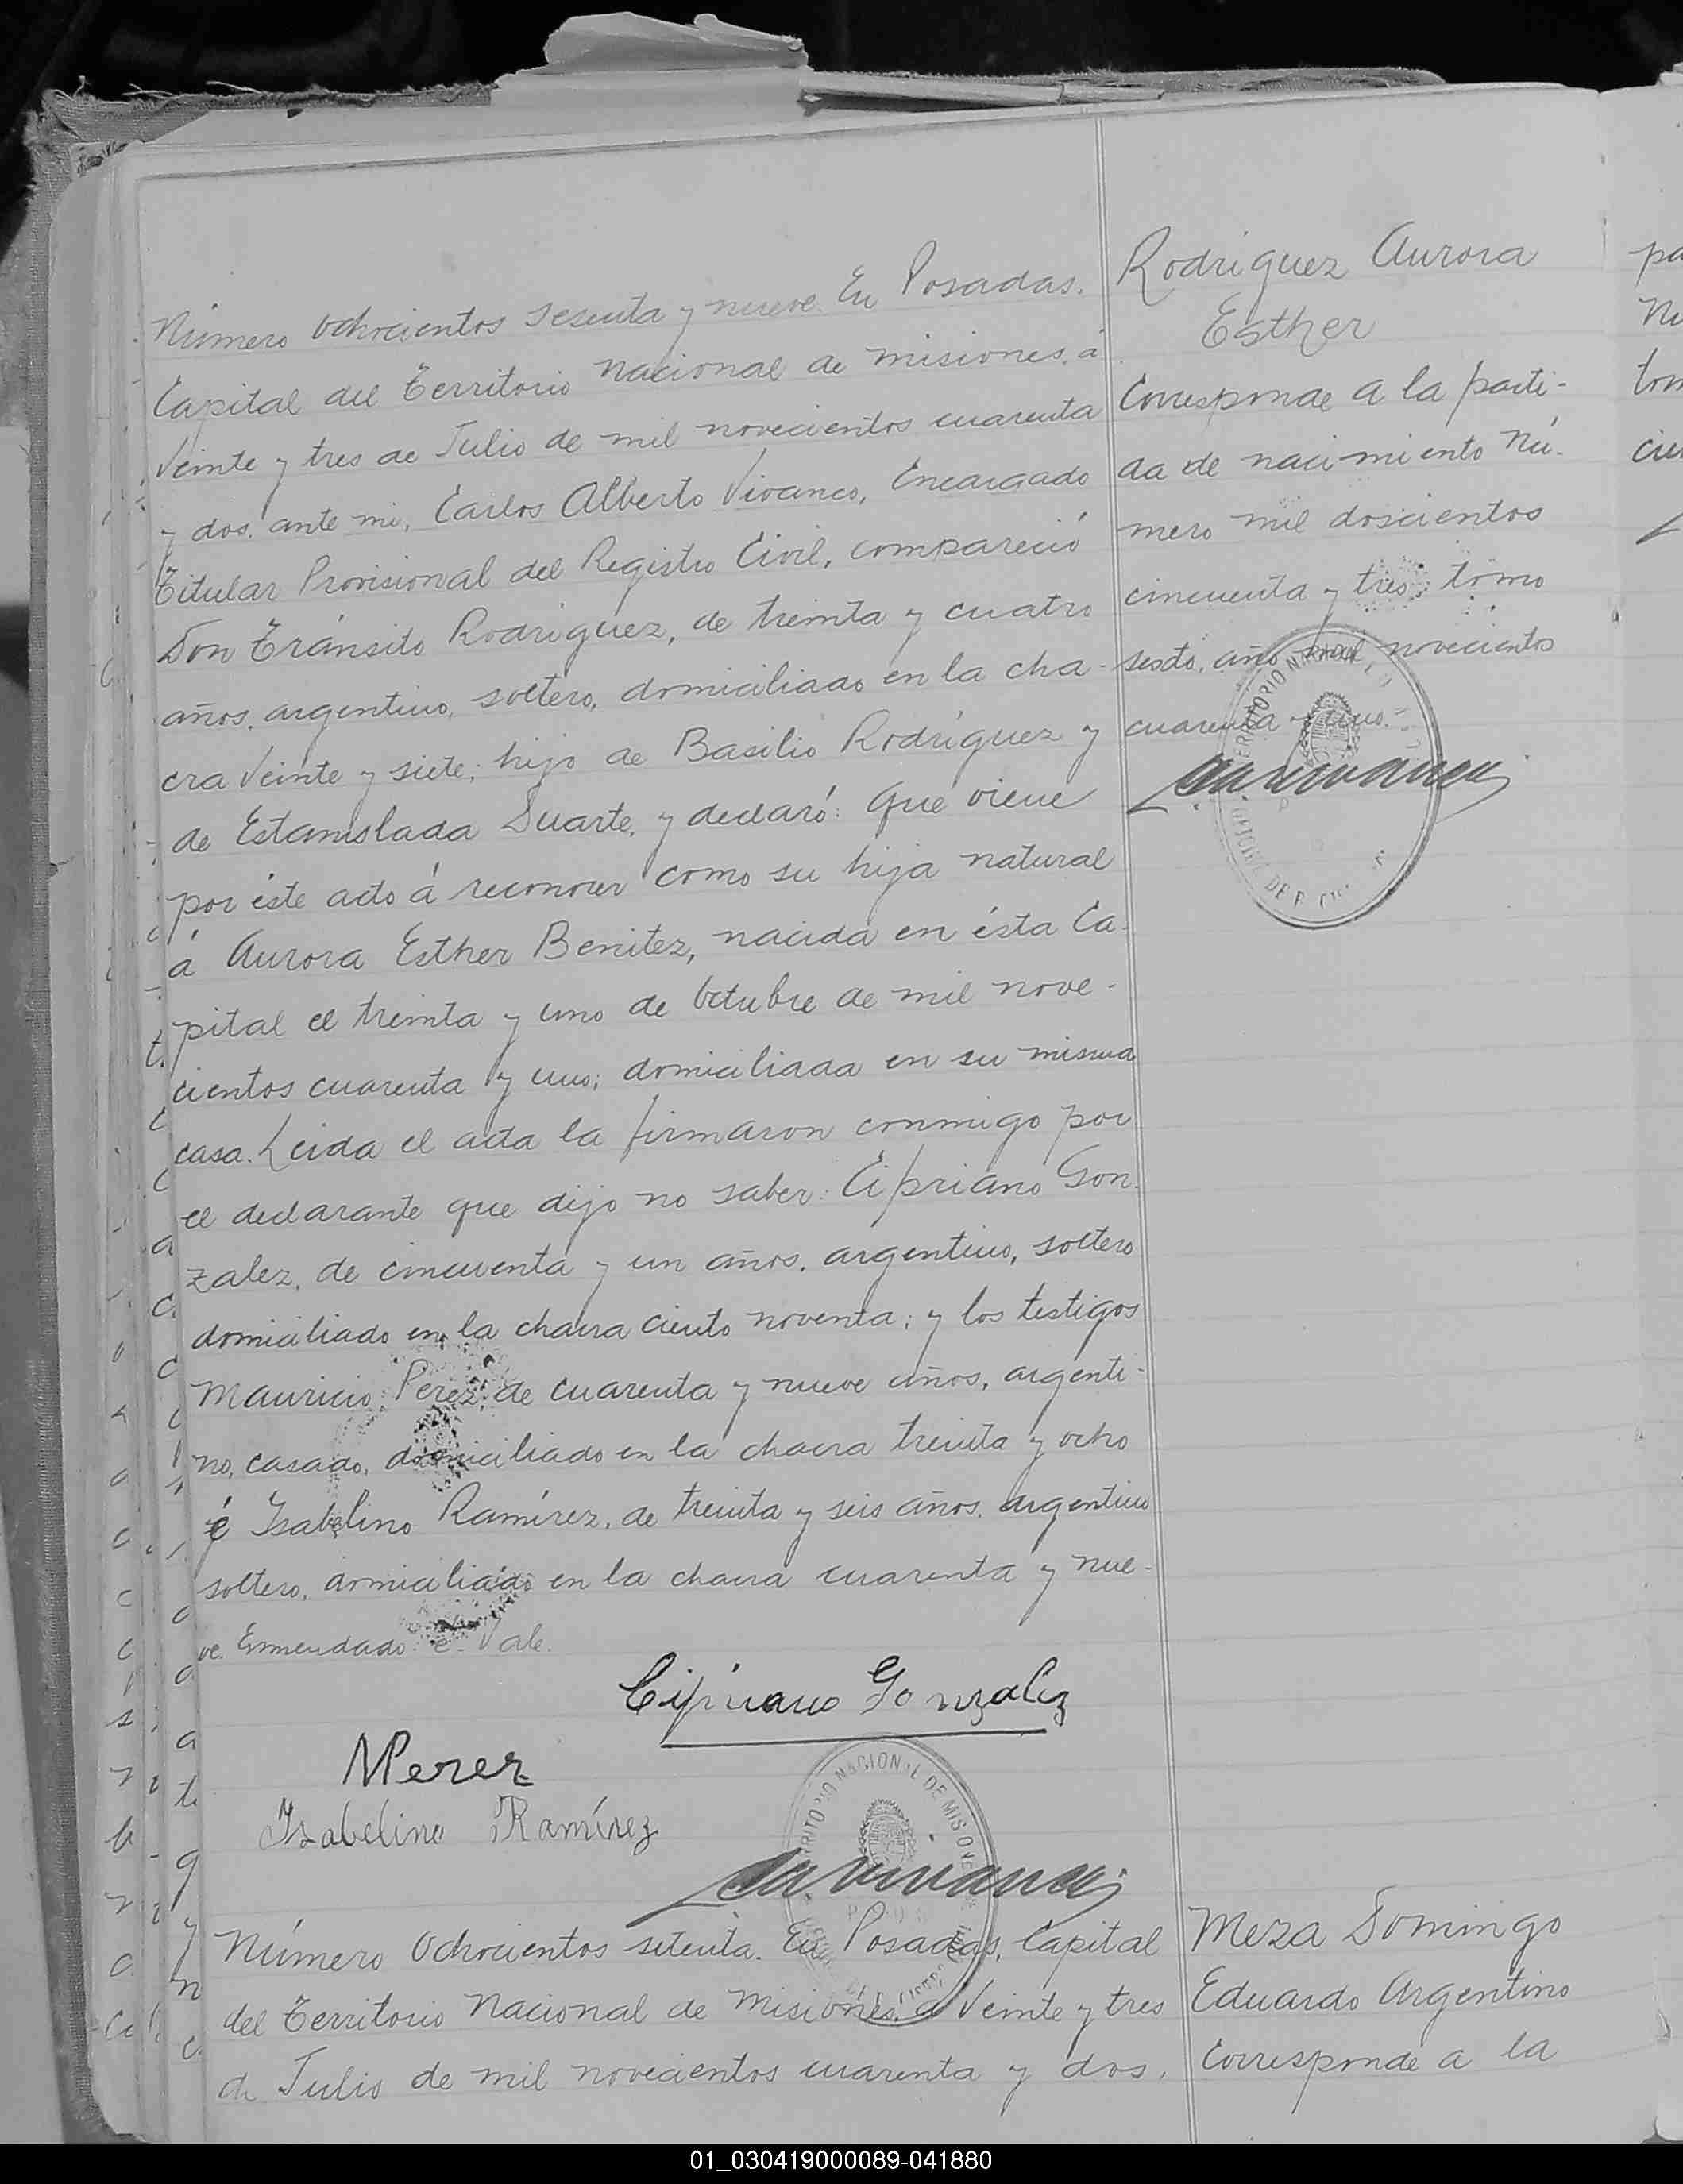 Número Ochocientos sesenta y nueve. En Posadas.
Capital del Territorio Nacional de Misiones, á
Veinte y tres de Julio de mil novecientos cuarenta
y dos. ante mi, Carlos Alberto Vivanco, Encargado
Titular Provisional del Registro Civil, compareció
Don Tránsito Rodriguez, de treinta y cuatro
años, argentino, soltero, domiciliado en la cha-
cra Veinte y siete; hijo de Basilio Rodriguez y
de Estanislada Duarte, y declaró: Que viene
por éste acto á reconocer como su hija natural
á Aurora Esther Benitez, nacida en ésta Ca-
pital el treinta y uno de Octubre de mil nove-
cientos cuarenta y uno; domiciliada en su misma
casa. Leida el acta la firmaron conmigo por
el declarante que dijo no saber: Cipriano Gon-
zalez, de cincuenta y un años, argentino, soltero
domiciliado en la chacra ciento noventa; y los testigos
Mauricio Perez, de cuarenta y nueve años, argenti-
no, casado, domiciliado en la chacra treinta y ocho
é Isabelino Ramírez, de treinta y seis años, argentino
soltero, domiciliado en la chacra cuarenta y nue-
ve. Enmendado: é- Vale.
Cipriano Gonzalez
MPerez
Isabelino Ramírez
TERRITORIO NACIONAL DE MISIONES
Rodriguez Aurora
Esther
Corresponde a la parti-
da de nacimiento Nú-
mero mil doscientos
cincuenta y tres, tomo
sexto, año mil novecientos
cuarenta y uno.
Número Ochocientos setenta. En Posadas, Capital
del Territorio Nacional de Misiones, a Veinte y tres
de Julio de mil novecientos cuarenta y dos,
Meza Domingo
Eduardo Argentino
Corresponde a la
01_030419000089-041880